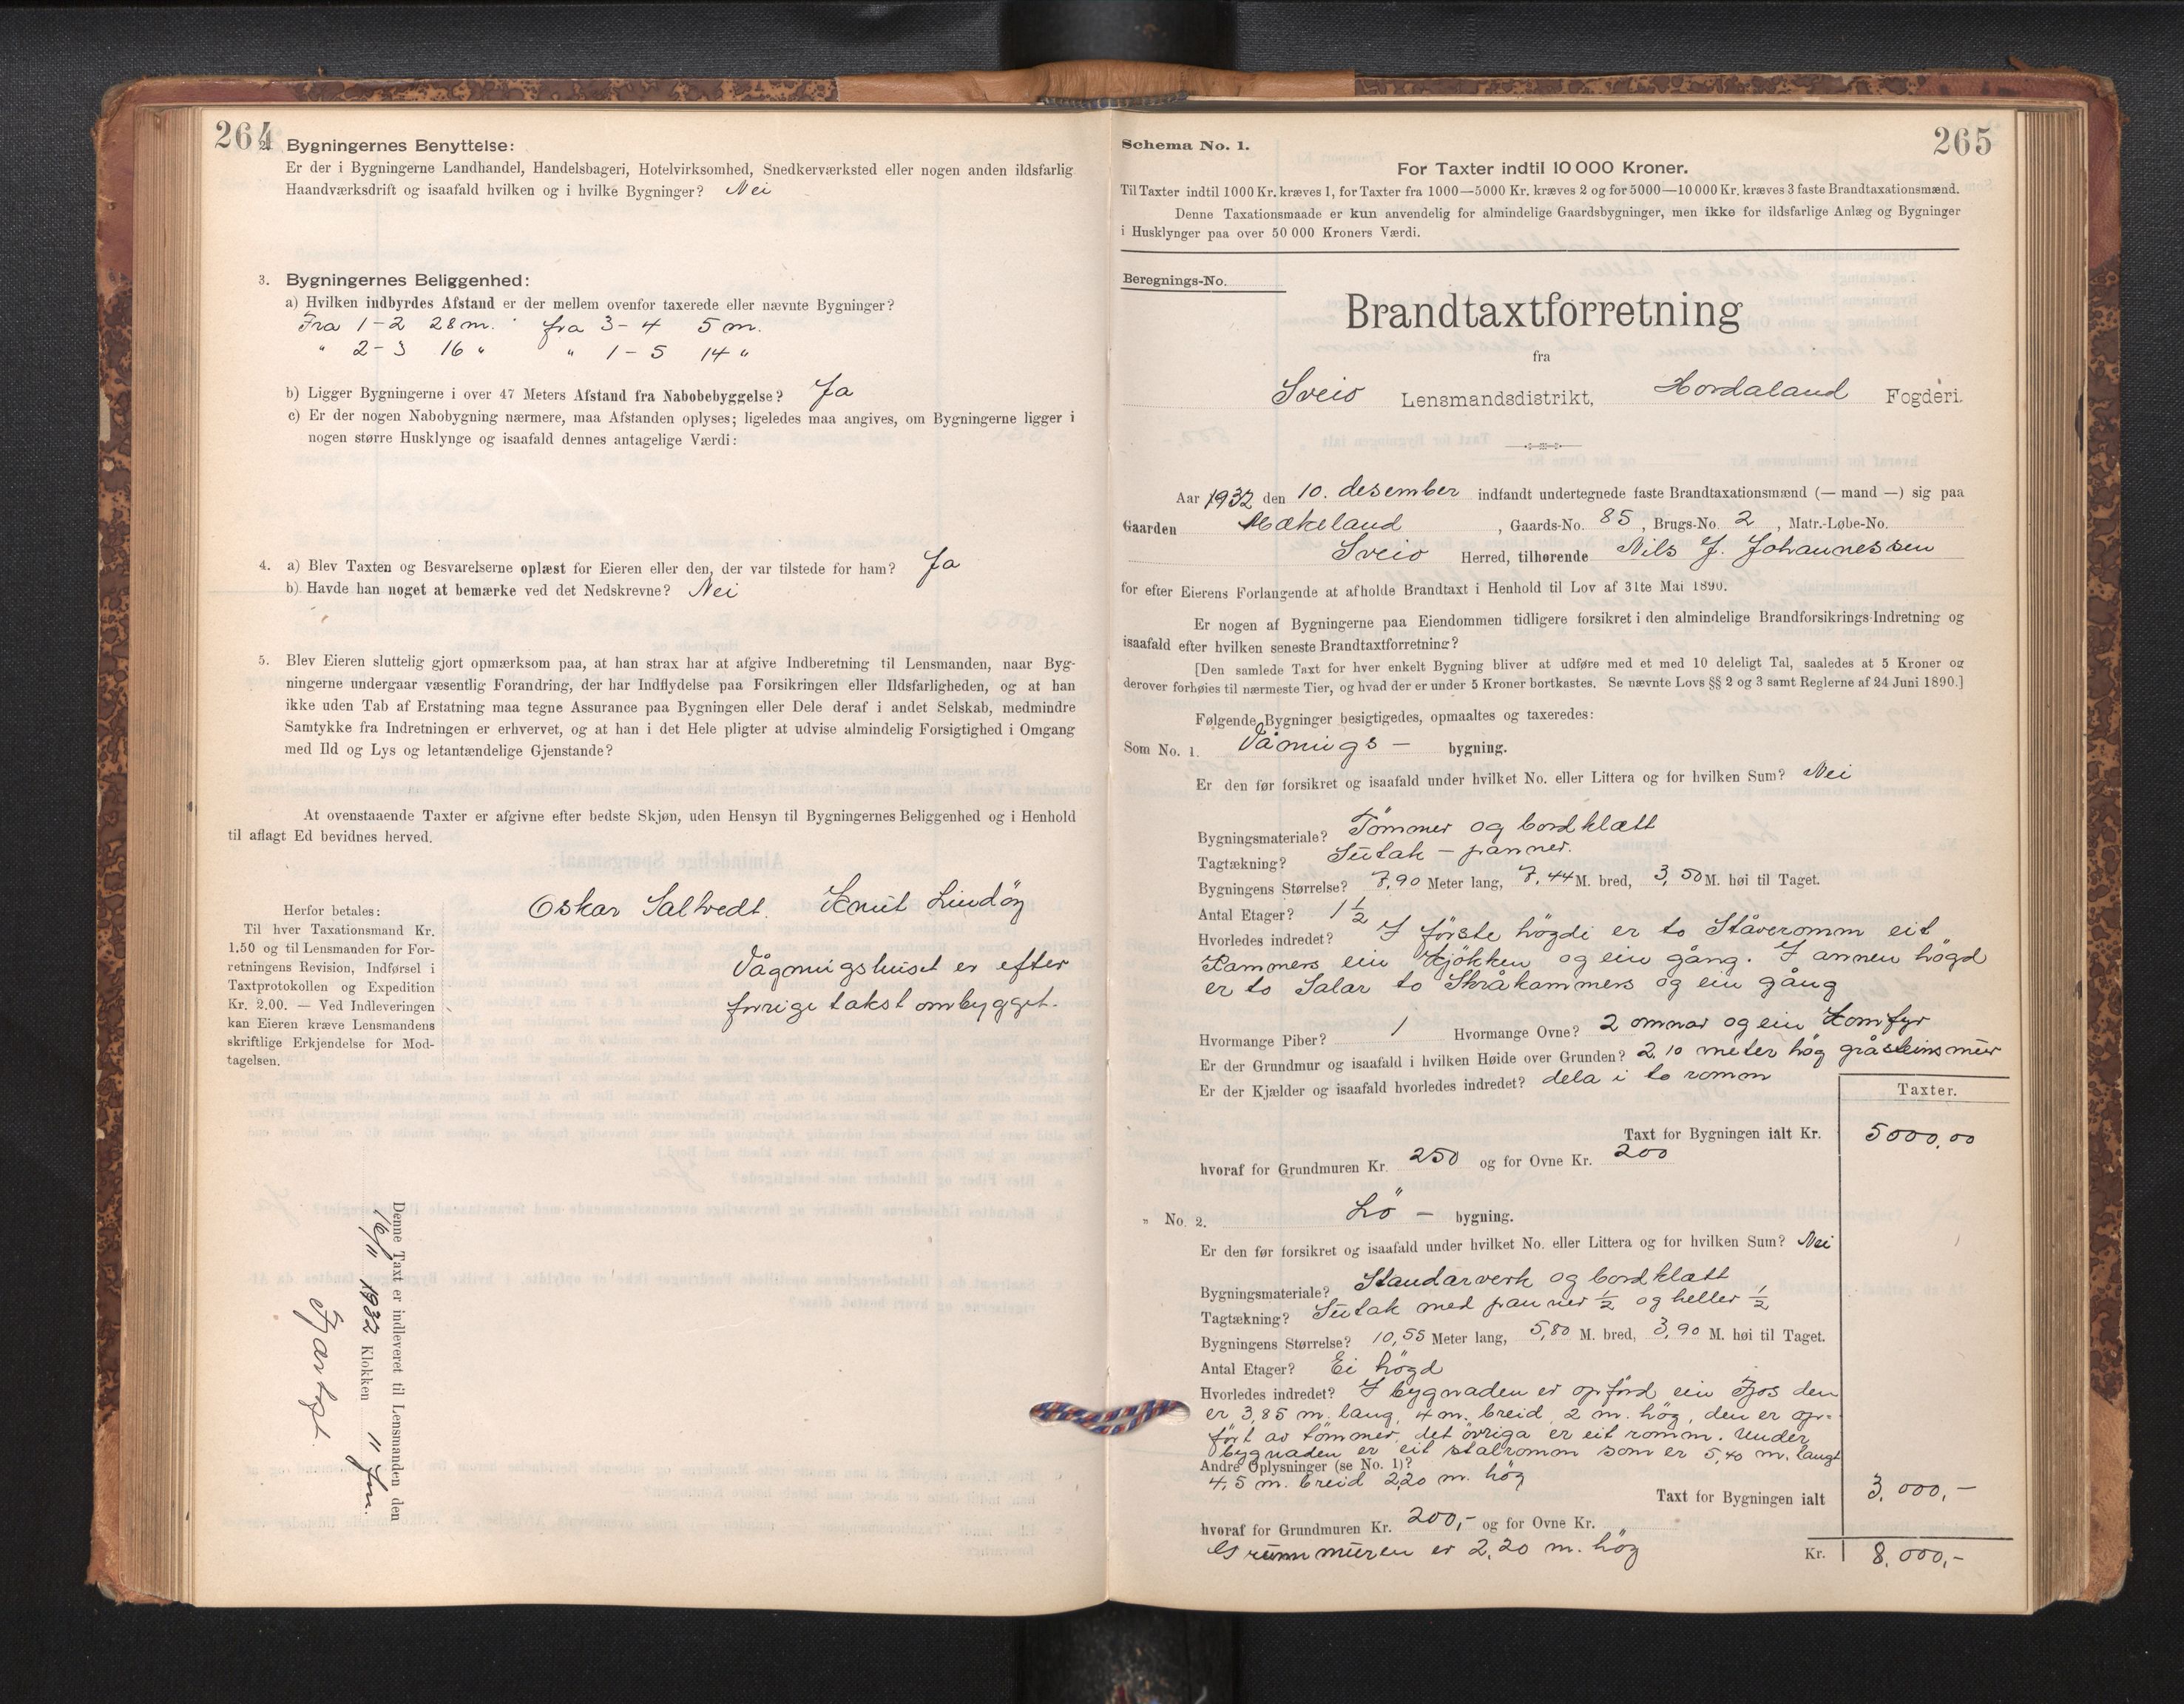 264
2. Bygningernes Benyttelse:
Er der i Bygningerne Landhandel, Handelsbageri, Hotelvirksomhed, Snedkerværksted eller nogen anden ildsfarlig
Haandværksdrift og isaafald hvilken og i hvilke Bygninger? Nei
3. Bygningernes Beliggenhed:
a) Hvilken indbyrdes Afstand er der mellem ovenfor taxerede eller nævnte Bygninger?
Fra 1-2 28 m. fra 3-4 5 m.
" 2-3 16 " " 1-5 14 "
b) Ligger Bygningerne i over 47 Meters Afstand fra Nabobebyggelse? Ja
c) Er der nogen Nabobygning nærmere, maa Afstanden oplyses; ligeledes maa angives, om Bygningerne ligger i
nogen større Husklynge og isaafald dennes antagelige Værdi:
4. a) Blev Taxten og Besvarelserne oplæst for Eieren eller den, der var tilstede for ham? Ja
b) Havde han noget at bemærke ved det Nedskrevne? Nei
5. Blev Eieren sluttelig gjort opmærksom paa, at han strax har at afgive Indberetning til Lensmanden, naar Byg-
ningerne undergaar væsentlig Forandring, der har Indflydelse paa Forsikringen eller Ildsfarligheden, og at han
ikke uden Tab af Erstatning maa tegne Assurance paa Bygningen eller Dele deraf i andet Selskab, medmindre
Samtykke fra Indretningen er erhvervet, og at han i det Hele pligter at udvise almindelig Forsigtighed i Omgang
med Ild og Lys og letantændelige Gjenstande?
At ovenstaaende Taxter er afgivne efter bedste Skjøn, uden Hensyn til Bygningernes Beliggenhed og i Henhold
til aflagt Ed bevidnes herved.
Oskar Salhvedt. Knut Lindöy
Vågningshuset er efter
forrige takst ombygget.
Herfor betales:
Til hver Taxationsmand Kr.
1.50 og til Lensmanden for For-
retningens Revision, Indførsel i
Taxtprotokollen og Expedition
Kr. 2.00. — Ved Indleveringen
kan Eieren kræve Lensmandens
skriftlige Erkjendelse for Mod-
tagelsen.
Denne Taxt er indleveret til Lensmanden den
16/11 1932 Klokken 11 fm.
265
Schema No. 1.
For Taxter indtil 10 000 Kroner.
Til Taxter indtil 1000 Kr. kræves 1, for Taxter fra 1000—5000 Kr. kræves 2 og for 5000—10 000 Kr. kræves 3 faste Brandtaxationsmænd.
Denne Taxationsmaade er kun anvendelig for almindelige Gaardsbygninger, men ikke for ildsfarlige Anlæg og Bygninger
i Husklynger paa over 50 000 Kroners Værdi.
Beregnings-No.
Brandtaxtforretning
fra
Sveio Lensmandsdistrikt, Hordaland Fogderi.
Aar 1932 den 10. desember indfandt undertegnede faste Brandtaxationsmænd (— mand —) sig paa
Gaarden Mækeland, Gaards-No. 85, Brugs-No. 2, Matr.-Løbe-No.
Sveio Herred, tilhørende Nils J. Johannessen
for efter Eierens Forlangende at afholde Brandtaxt i Henhold til Lov af 31te Mai 1890.
Er nogen af Bygningerne paa Eiendommen tidligere forsikret i den almindelige Brandforsikrings-Indretning og
isaafald efter hvilken seneste Brandtaxtforretning?
[Den samlede Taxt for hver enkelt Bygning bliver at udføre med et med 10 deleligt Tal, saaledes at 5 Kroner og
derover forhøies til nærmeste Tier, og hvad der er under 5 Kroner bortkastes. Se nævnte Lovs §§ 2 og 3 samt Reglerne af 24 Juni 1890.]
Følgende Bygninger besigtigedes, opmaaltes og taxeredes:
Som No. 1. Vånings — bygning.
Er den før forsikret og isaafald under hvilket No. eller Littera og for hvilken Sum? Nei
Bygningsmateriale? Tömmer og bordklætt
Tagtækning? Sutak — panner.
Bygningens Størrelse? 7,90 Meter lang, 7,44 M. bred, 3,50 M. høi til Taget.
Antal Etager? 1 1/2
Hvorledes indredet? I förste högdi er to Ståveromm eit
Kammers ein Kjökken og ein gång. I annen högd
er to Salar to Skråkammers og ein gång
Hvormange Piber? 1 Hvormange Ovne? 2 omnar og ein Komfyr
Er der Grundmur og isaafald i hvilken Høide over Grunden? 2,10 meter hög gråsteinsmur
Er der Kjælder og isaafald hvorledes indredet? dela i to romm
Taxter.
Taxt for Bygningen ialt Kr. 5000,00
hvoraf for Grundmuren Kr. 250 og for Ovne Kr. 200
" No. 2. Lö — bygning.
Er den før forsikret og isaafald under hvilket No. eller Littera og for hvilken Sum? Nei
Bygningsmateriale? Standarverk og bordklætt
Tagtækning? Sutak med panner 1/2 og heller 1/2
Bygningens Størrelse? 10,55 Meter lang, 5,80 M. bred, 3,90 M. høi til Taget.
Antal Etager? Ei högd
Hvorledes indredet? I bygnaden er opförd ein Fjos den
er 3,85 m. lang, 4 m. breid, 2 m. hög, den er op-
fört av tömmer, det övriga er eit romm. Under
bygnaden er eit stalromm som er 5,40 m. langt
Andre Oplysninger (se No. 1)?
4,5 m. breid 2,20 m. hög
Taxt for Bygningen ialt 3.000,-
hvoraf for Grundmuren Kr. 200,- og for Ovne Kr.
Grunnmuren er 2,20 m. hög
Kr. 8.000,-